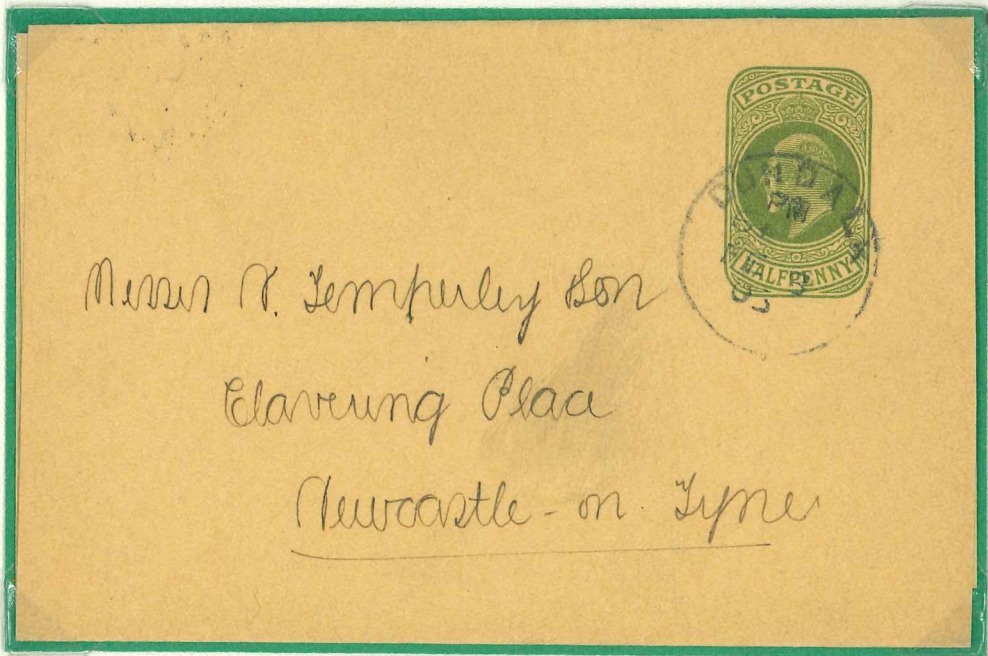 POSTAGE
HALFPENNY
DUNDALK
PM
Messrs T. Temperley Son
Clavering Place
Newcastle-on-Tyne